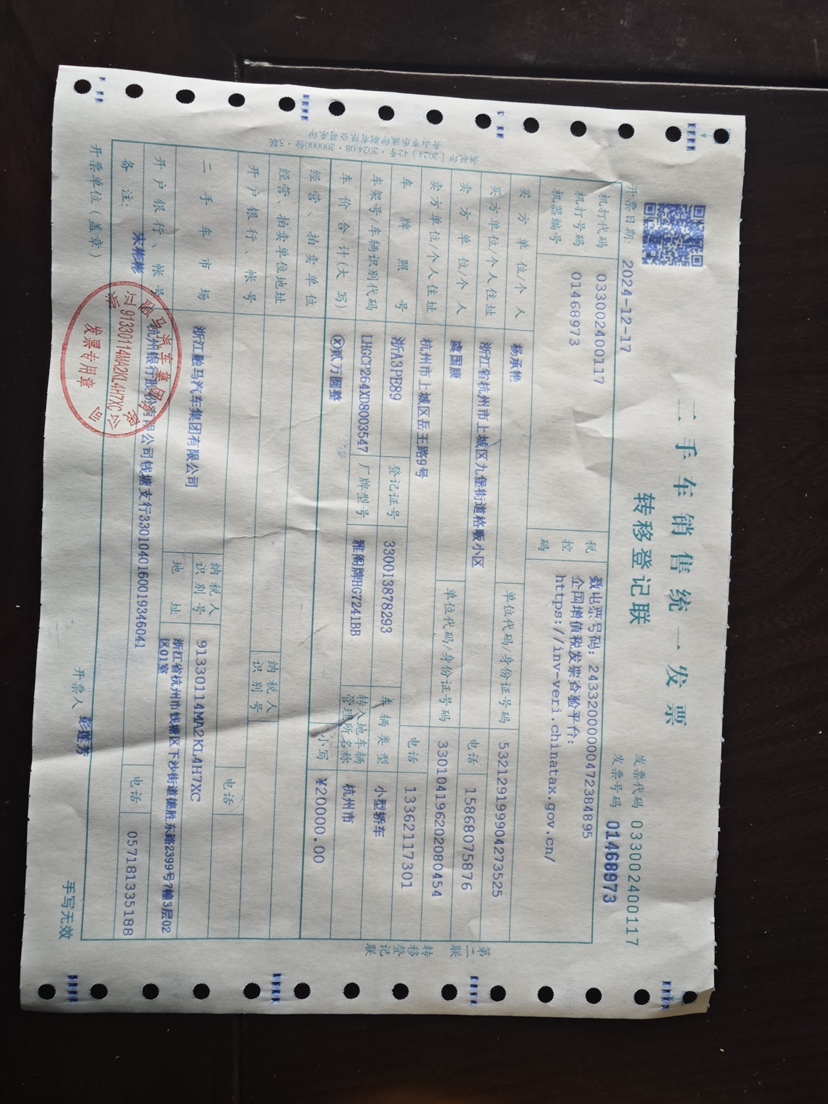 二手车销售统一发票
转移登记联
发票代码 033002400117
发票号码 01468973
开票日期: 2024-12-17
机打代码 033002400117
机打号码 01468973
机器编号
税控码
数电票号码: 24332000000472384895
全国增值税发票查验平台:
https://inv-veri.chinatax.gov.cn/
买方单位/个人 杨承艳 单位代码/身份证号码 532129199904273525
买方单位/个人住址 浙江省杭州市上城区九堡街道格畈小区 电话 15868075876
卖方单位/个人 虞国顺 单位代码/身份证号码 330104196202080454
卖方单位/个人住址 杭州市上城区岳王路9号 电话 13362117301
车牌照号 浙A3PE89 登记证号 330013878293 车辆类型 小型轿车
车架号/车辆识别代码 LHGCP264XD8003547 厂牌型号 雅阁牌HG7241BB 转入地车辆管理所名称 杭州市
车价合计(大写) ⊗贰万圆整 小写 ¥20000.00
经营、拍卖单位
经营、拍卖单位地址 纳税人识别号
开户银行、帐号 电话
二手车市场 浙江融马汽车集团有限公司 纳税人识别号 91330114MA2KL4H7XC
地址 浙江省杭州市钱塘区下沙街道德胜东路2399号7幢3层02区01室
开户银行、帐号 杭州银行股份有限公司钱塘支行3301040160019346041 电话 057181335188
备注:
开票单位(盖章) 开票人
手写无效
第二联 转移登记联
91330114MA2KL4H7XC
发票专用章